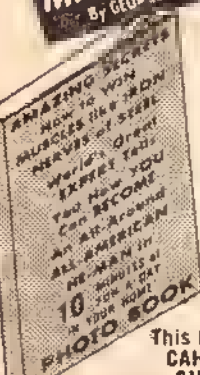 By GEO
AMAZING SECRETS
HOW TO WIN
MUSCLES like IRON
NERVES of STEEL
World's Great
EXPERT Tells
You How YOU
Can BECOME
An All-Around
ALL-AMERICAN
HE-MAN in
10 MINUTES of
FUN A-DAY
IN YOUR HOME
PHOTO BOOK
This